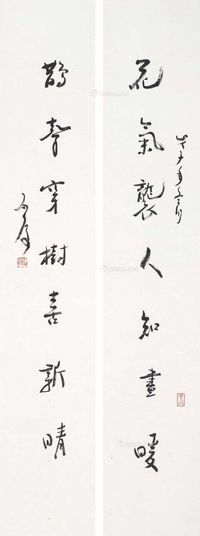 花氣襲人知晝暖
戊子年
鵲聲穿樹喜新晴